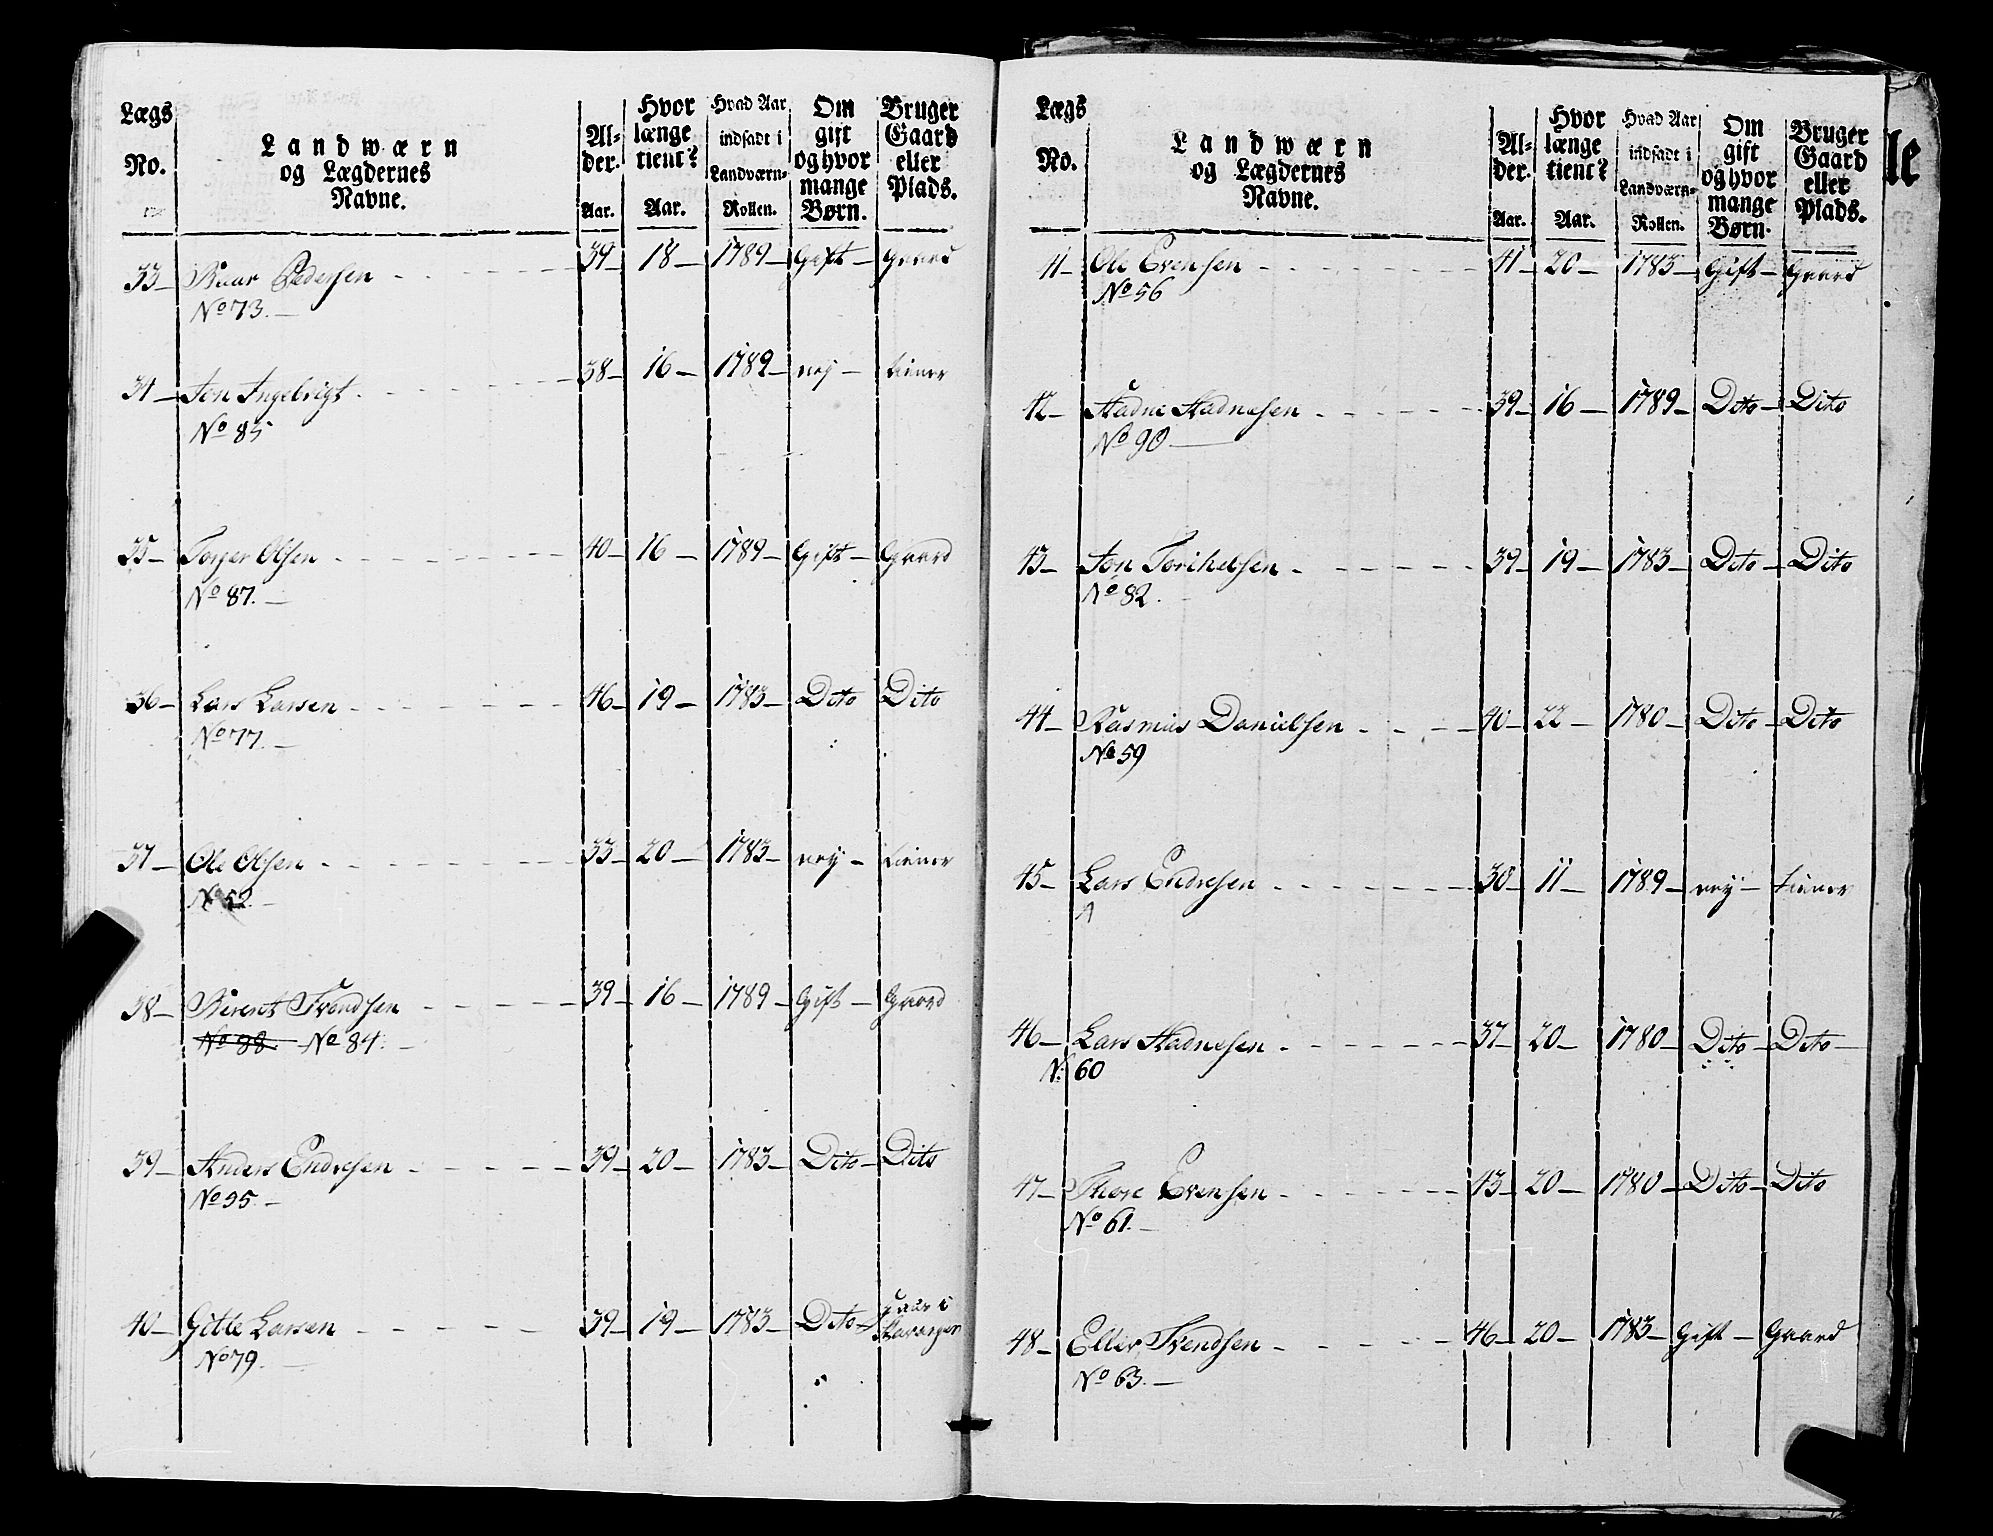 Lægs No. Landwærn og Lægdernes Navne. Al- der. Aar. Hvor længe tient? Aar. Hvad Aar indsadt i Landværn- Rollen. Om gift og hvor mange Børn. Bruger Gaard eller Plads.
33 Baar Pedersen 39 18 1789 Gift Gaard
No 73.
34 Jon Ingebrigt. 38 16 1789 nej tiener
No 85
35 Torger Olsen 40 16 1789 Gift Gaard
No 87.
36 Lars Larsen 46 19 1783 Dito Dito
No 77.
37 Ole Olsen 33 20 1783 nej tiener
No 52.
38 Berent Svendsen 39 16 1789 Gift Gaard
No 88. No 84.
39 Anders Endresen 39 20 1783 Dito Dito
No 95.
40 Gitle Larsen 39 19 1783 Dito i Stavanger
No 79.
Lægs No. Landwærn og Lægdernes Navne. Al- der. Aar. Hvor længe tient? Aar. Hvad Aar indsadt i Landværn- Rollen. Om gift og hvor mange Børn. Bruger Gaard eller Plads.
41 Ole Evensen 41 20 1783 Gift Gaard
No 56
42 Aadne Aadnesen 39 16 1789 Dito Dito
No 90
43 Jon Torkelsen 39 19 1783 Dito Dito
No 82.
44 Rasmus Danielsen 40 22 1780 Dito Dito
No 59
45 Lars Endresen 30 11 1789 nej tiener
46 Lars Aadnesen 37 20 1780 Dito Dito
N: 60
47 Thore Evensen 43 20 1780 Dito Dito
No 61.
48 Eller Svendsen 46 20 1783 Gift Gaard
No 63.
le